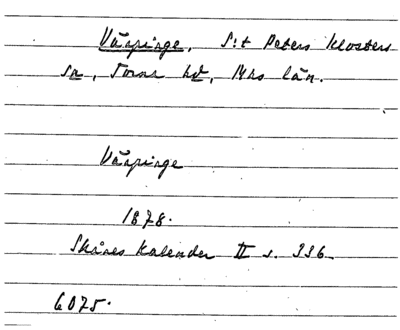 Värpinge, S:t Peters Klosters
sn, Torna hd, Mhs län.
Värpinge
1878.
Skånes Kalender II s. 336.
6075.